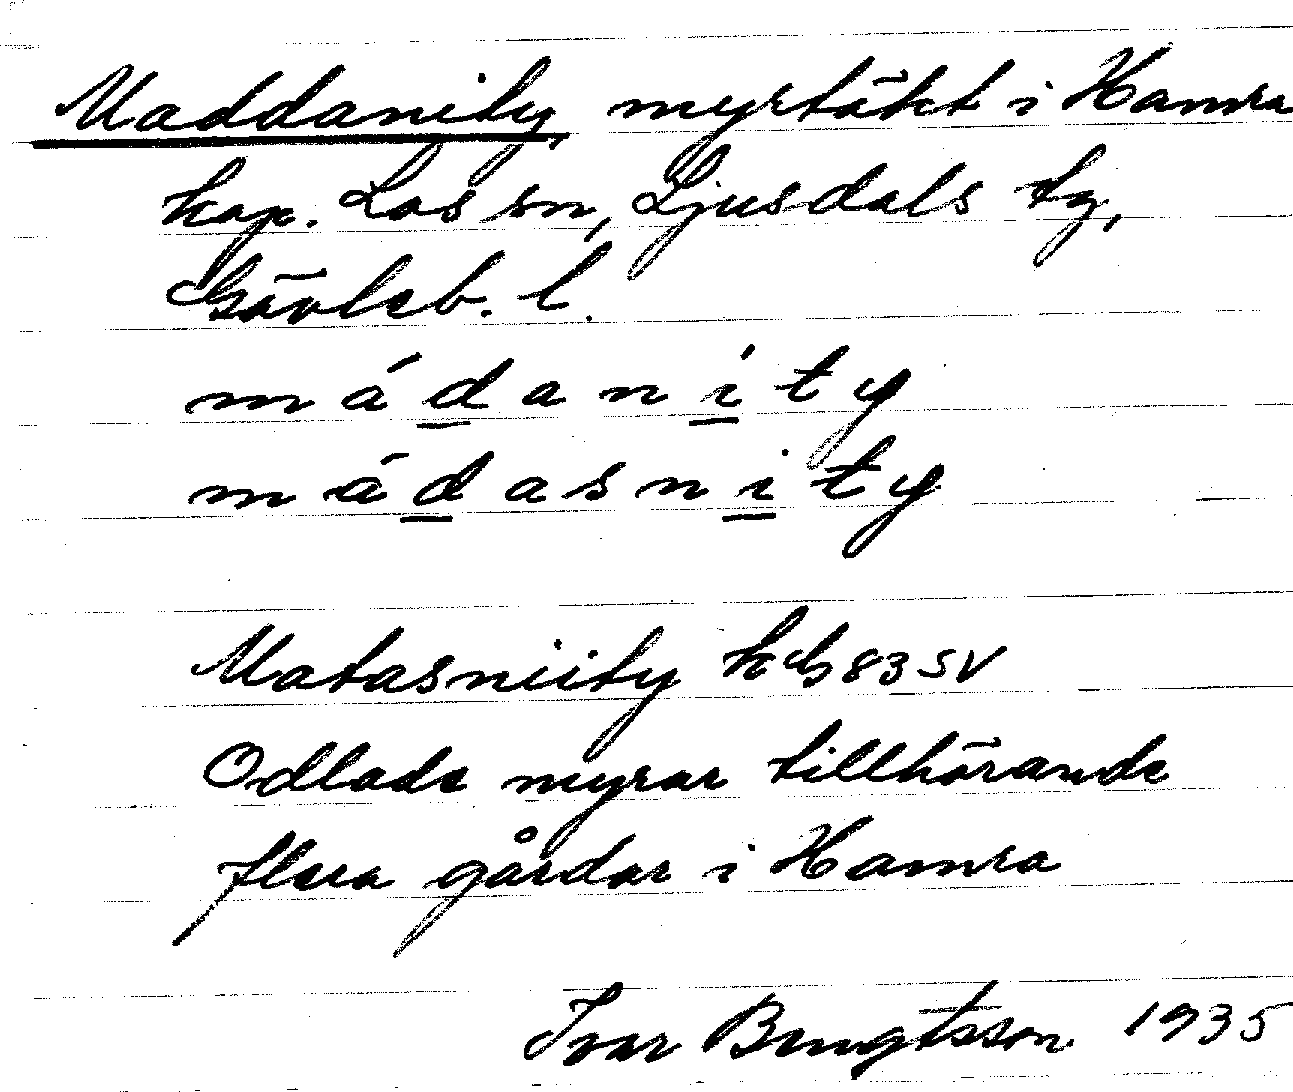 Maddanity, myrtäkt i Hamra
kap. Los sn, Ljusdals tg,
Gävleb. l.
mádanity
mádasnity
Matasniity kG 83 SV
Odlade myrar tillhörande
flera gårdar i Hamra
Ivar Bengtsson 1935